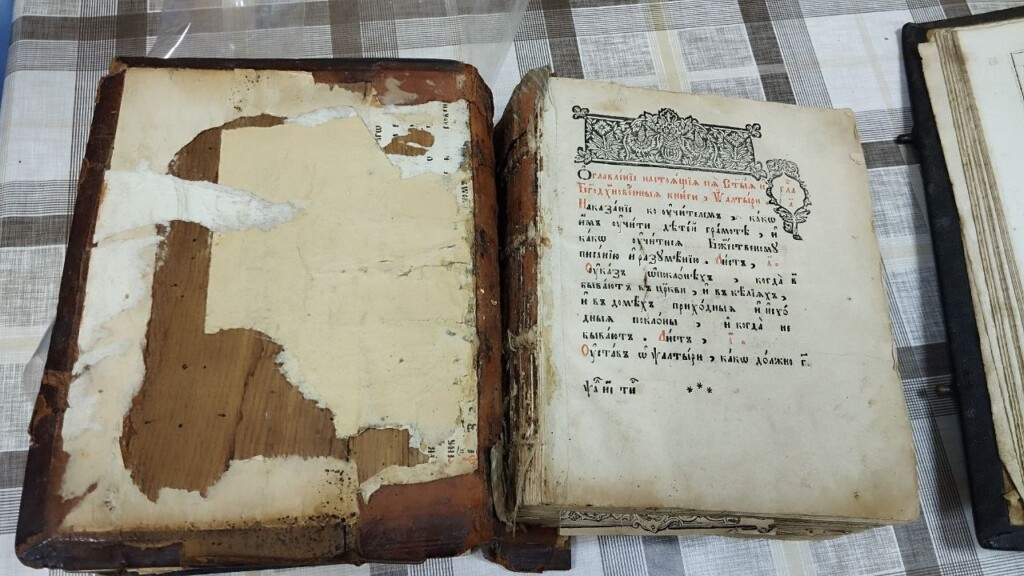 Ѻглавле́нїе настоѧ́щїѧ сеѧ̀ Ст҃ы́ѧ и҆
Бг҃одꙋхнове́нныѧ кни́ги, Ѱалты́ри
гла
Наказа́нїе ко ᲂу҆чи́телемъ, ка́кѡ
и҆́мъ ᲂу҆чи́ти дѣте́й гра́мотѣ, и҆
ка́кѡ ᲂу҆чи́тисѧ Бж҃е́ственному
писа́нїю и҆ разꙋмѣ́нїю. Ли́стъ,
Оу҆ка́зъ ѡ҆ покло́нѣхъ, когда̀ в̾
быва́ютъ въ цр҃кви, и҆ въ ке́лїѧхъ,
и҆ въ домѣ́хъ прихо́дныѧ и҆ и҆схо́
дныѧ покло́ны, и҆ когда̀ не
быва́ютъ. Ли́стъ,
Оу҆ста́въ ѡ҆ ѱалты́ри, ка́кѡ до́лжно